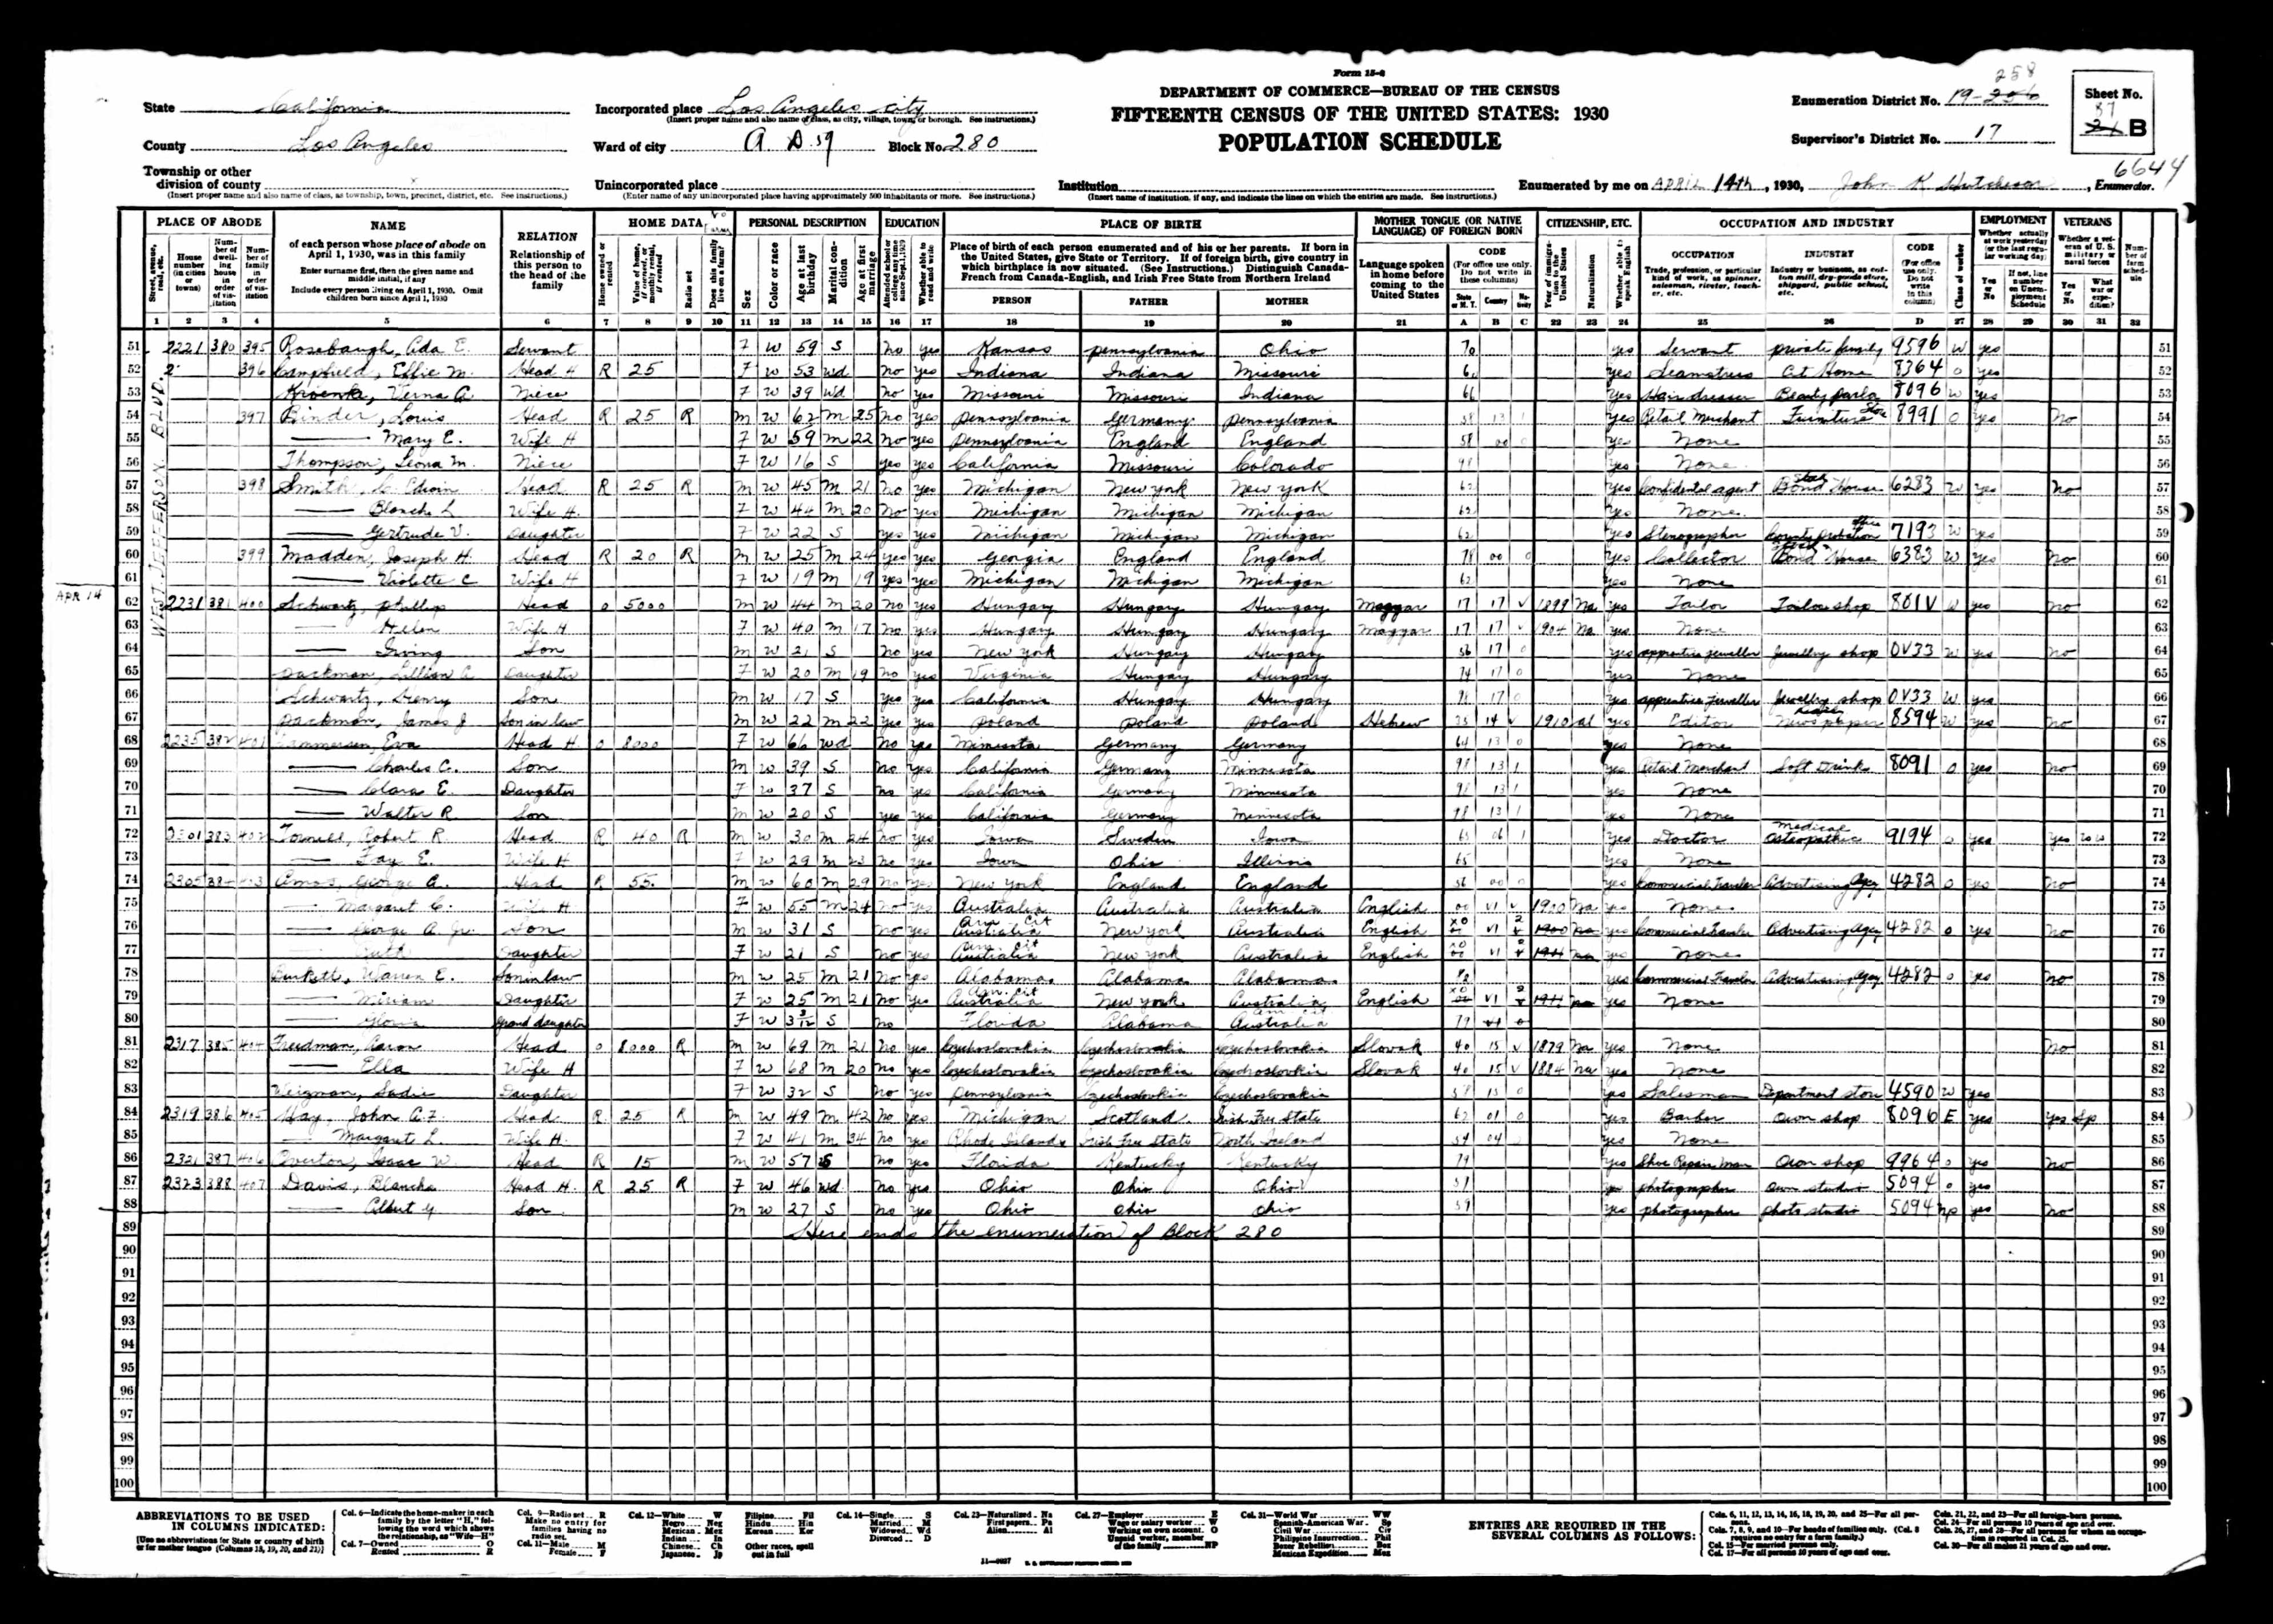 Form 15-6
258
DEPARTMENT OF COMMERCE—BUREAU OF THE CENSUS
FIFTEENTH CENSUS OF THE UNITED STATES: 1930
POPULATION SCHEDULE
State California
County Los Angeles
Township or other division of county
(Insert proper name and also name of class, as township, town, precinct, district, etc. See instructions.)
Incorporated place Los Angeles city
(Insert proper name and also name of class, as city, village, town, or borough. See instructions.)
Ward of city A D 59 Block No. 280
Unincorporated place
(Enter name of any unincorporated place having approximately 500 inhabitants or more. See instructions.)
Institution
(Insert name of institution, if any, and indicate the lines on which the entries are made. See instructions.)
Enumeration District No. 19-
Supervisor's District No. 17
Sheet No. B
6644
Enumerated by me on April 14th, 1930, John K Hutcheson, Enumerator.
PLACE OF ABODE
NAME
of each person whose place of abode on April 1, 1930, was in this family
Enter surname first, then the given name and middle initial, if any
Include every person living on April 1, 1930. Omit children born since April 1, 1930
RELATION
Relationship of this person to the head of the family
HOME DATA
PERSONAL DESCRIPTION
EDUCATION
PLACE OF BIRTH
Place of birth of each person enumerated and of his or her parents. If born in the United States, give State or Territory. If of foreign birth, give country in which birthplace is now situated. (See Instructions.) Distinguish Canada-French from Canada-English, and Irish Free State from Northern Ireland
PERSON FATHER MOTHER
MOTHER TONGUE (OR NATIVE LANGUAGE) OF FOREIGN BORN
Language spoken in home before coming to the United States
CITIZENSHIP, ETC.
OCCUPATION AND INDUSTRY
OCCUPATION INDUSTRY CODE
EMPLOYMENT
VETERANS
1 2 3 4 5 6 7 8 9 10 11 12 13 14 15 16 17 18 19 20 21 A B C 22 23 24 25 26 D 27 28 29 30 31 32
WEST JEFFERSON BLVD.
APR 14
51 2221 380 395 Rosebaugh, Ada E. Servant F W 59 S no yes Kansas Pennsylvania Ohio 70 yes Servant private family 9596 W yes 51
52 396 Campfield, Effie M. Head H R 25 F W 53 Wd no yes Indiana Indiana Missouri yes Seamstress At Home 8364 O yes 52
53 Verna A. Niece F W 39 Wd no yes Missouri Missouri Indiana 66 yes Hair dresser Beauty parlor 8096 W yes 53
54 397 Binder, Louis Head R 25 R M W 62 M 25 no yes Pennsylvania Germany Pennsylvania 58 13 1 yes Retail Merchant Furniture Store 8991 O yes No 54
55 Mary E. Wife H F W 59 M 22 no yes Pennsylvania England England 58 00 0 yes None 55
56 Thompson, Leona M. Niece F W 16 S yes yes California Missouri Colorado 98 yes None 56
57 398 Smith, Edwin Head R 25 R M W 45 M 21 no yes Michigan New York New York 62 yes Confidential agent Bond House 6283 W yes No 57
58 Blanch L Wife H. F W 44 M 20 no yes Michigan Michigan Michigan 62 yes None 58
59 Gertrude V. Daughter F W 22 S yes yes Michigan Michigan Michigan 62 yes Stenographer County Probation 7193 W yes 59
60 399 Madden, Joseph H. Head R 20 R M W 25 M 24 yes yes Georgia England England 78 00 0 yes Collector Bond House 6383 W yes No 60
61 Violette C Wife H F W 19 M 19 yes yes Michigan Michigan Michigan 62 yes None 61
62 2231 381 400 Schwartz, Phillip Head O 5000 M W 44 M 20 no yes Hungary Hungary Hungary Magyar 17 17 V 1899 Na yes Tailor Tailor shop 801V W yes No 62
63 Helen Wife H F W 40 M 17 no yes Hungary Hungary Hungary Magyar 17 17 V 1904 Na yes None 63
64 Irving Son M W 21 S no yes New York Hungary Hungary 56 17 0 yes apprentice jeweller Jewellry shop 0V33 W yes No 64
65 Lillian Daughter F W 20 M 19 no yes Virginia Hungary Hungary 74 17 0 yes None 65
66 Schwartz, Henry Son M W 17 S yes yes California Hungary Hungary 98 17 0 yes apprentice jeweller Jewellry shop 0V33 W yes 66
67 James J Son in law M W 22 M 22 yes yes Poland Poland Poland Hebrew 14 V 1910 Al yes Editor Newspaper 8594 W yes No 67
68 2235 382 401 Eva Head H. O 8000 F W 66 Wd no yes Minnesota Germany Germany 64 13 0 yes None 68
69 Charles C. Son M W 39 S no yes California Germany Minnesota 98 13 1 yes Retail Merchant Soft Drinks 8091 O yes No 69
70 Clara E. Daughter F W 37 S no yes California Germany Minnesota 98 13 1 yes None 70
71 Walter R Son M W 20 S yes yes California Germany Minnesota 98 13 1 yes None 71
72 2301 383 402 Robert R. Head R 40 R M W 30 M 24 no yes Iowa Sweden Iowa 65 06 1 yes Doctor Medical Osteopathic 9194 O yes Yes WW 72
73 Fay E. Wife H F W 29 M 23 no yes Iowa Ohio Illinois 65 yes None 73
74 2305 384 403 Amos, George A. Head R 55. M W 60 M 29 no yes New York England England 56 00 0 yes Commercial Traveler Advertising Agcy 4282 O yes No 74
75 Margaret C. Wife H F W 55 M 24 no yes Australia Australia Australia English 00 V1 V 1900 Na yes None 75
76 George A. Jr. Son M W 31 S no yes Australia Am. Cit New York Australia English V1 2 1900 Na yes Commercial Traveler Advertising Agcy 4282 O yes No 76
77 Ruth Daughter F W 21 S no yes Australia Am. Cit New York Australia English V1 2 1911 Na yes None 77
78 Burkett, Warren E. Son in law M W 25 M 21 no yes Alabama Alabama Alabama 82 yes Commercial Traveler Advertising Agcy 4282 O yes No 78
79 Miriam Daughter F W 25 M 21 no yes Australia Am. Cit New York Australia English V1 2 1911 Na yes None 79
80 Gloria Grand daughter F W 3 3/12 S no Florida Alabama Australia Am. Cit. 79 V1 0 80
81 2317 385 404 Freedman, Aaron Head O 8000 R M W 69 M 21 no yes Czechoslovakia Czechoslovakia Czechoslovakia Slovak 40 15 V 1879 Na yes None No 81
82 Ella Wife H F W 68 M 20 no yes Czechoslovakia Czechoslovakia Czechoslovakia Slovak 40 15 V 1884 Na yes None 82
83 Weigman, Sadie Daughter F W 32 S no yes Pennsylvania Czechoslovakia Czechoslovakia 58 15 0 yes Salesman Department store 4590 W yes 83
84 2319 386 405 Hay, John A.F. Head R 25 R M W 49 M 42 no yes Michigan Scotland Irish Free State 62 01 0 yes Barber Own shop 8096 E yes Yes Sp 84
85 Margaret L. Wife H. F W 41 M 34 no yes Rhode Island Irish Free State North Ireland 54 04 yes None 85
86 2321 387 406 Overton, Isaac W. Head R 15 M W 57 S no yes Florida Kentucky Kentucky 79 yes Shoe Repair Man Own shop 9964 O yes No 86
87 2323 388 407 Davis, Blanche Head H. R 25 R F W 46 Wd no yes Ohio Ohio Ohio 59 yes photographer own studio 5094 O yes 87
88 Albert Son M W 27 S no yes Ohio Ohio Ohio 59 yes photographer photo studio 5094 NP yes No 88
89 Here ends the enumeration of Block 280 89
90 90
91 91
92 92
93 93
94 94
95 95
96 96
97 97
98 98
99 99
100 100
ABBREVIATIONS TO BE USED IN COLUMNS INDICATED:
[Use no abbreviations for State or country of birth or for mother tongue (Columns 18, 19, 20, and 21)]
ENTRIES ARE REQUIRED IN THE SEVERAL COLUMNS AS FOLLOWS: